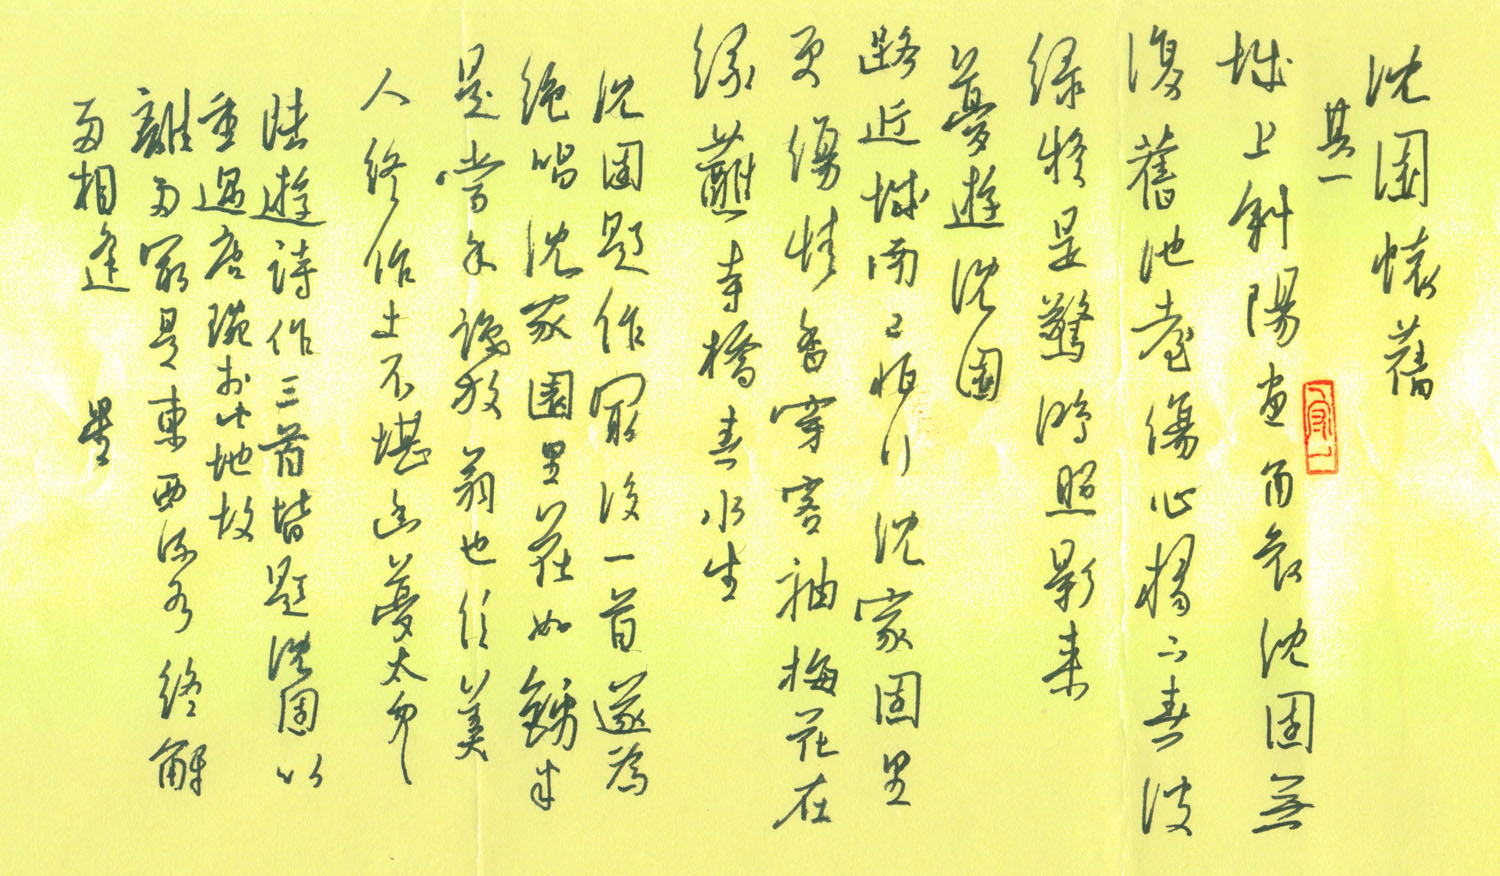 沈園懷舊
其一
城上斜陽畫角哀沈園無
復舊池臺傷心橋下春波
緑是驚鴻照影来
夢遊沈園
路近城南已怕行沈家園里
更傷情香穿客袖梅花在
緑蘸寺橋春水生
沈園題作最後一首遂為
絶唱沈家園里花如錦半
是當年識放翁也信美
人終作土不堪幽夢太匆匆
陸遊詩作三首皆題沈園以
重過唐琬於此地故
離最是東西流水終解
兩相逢